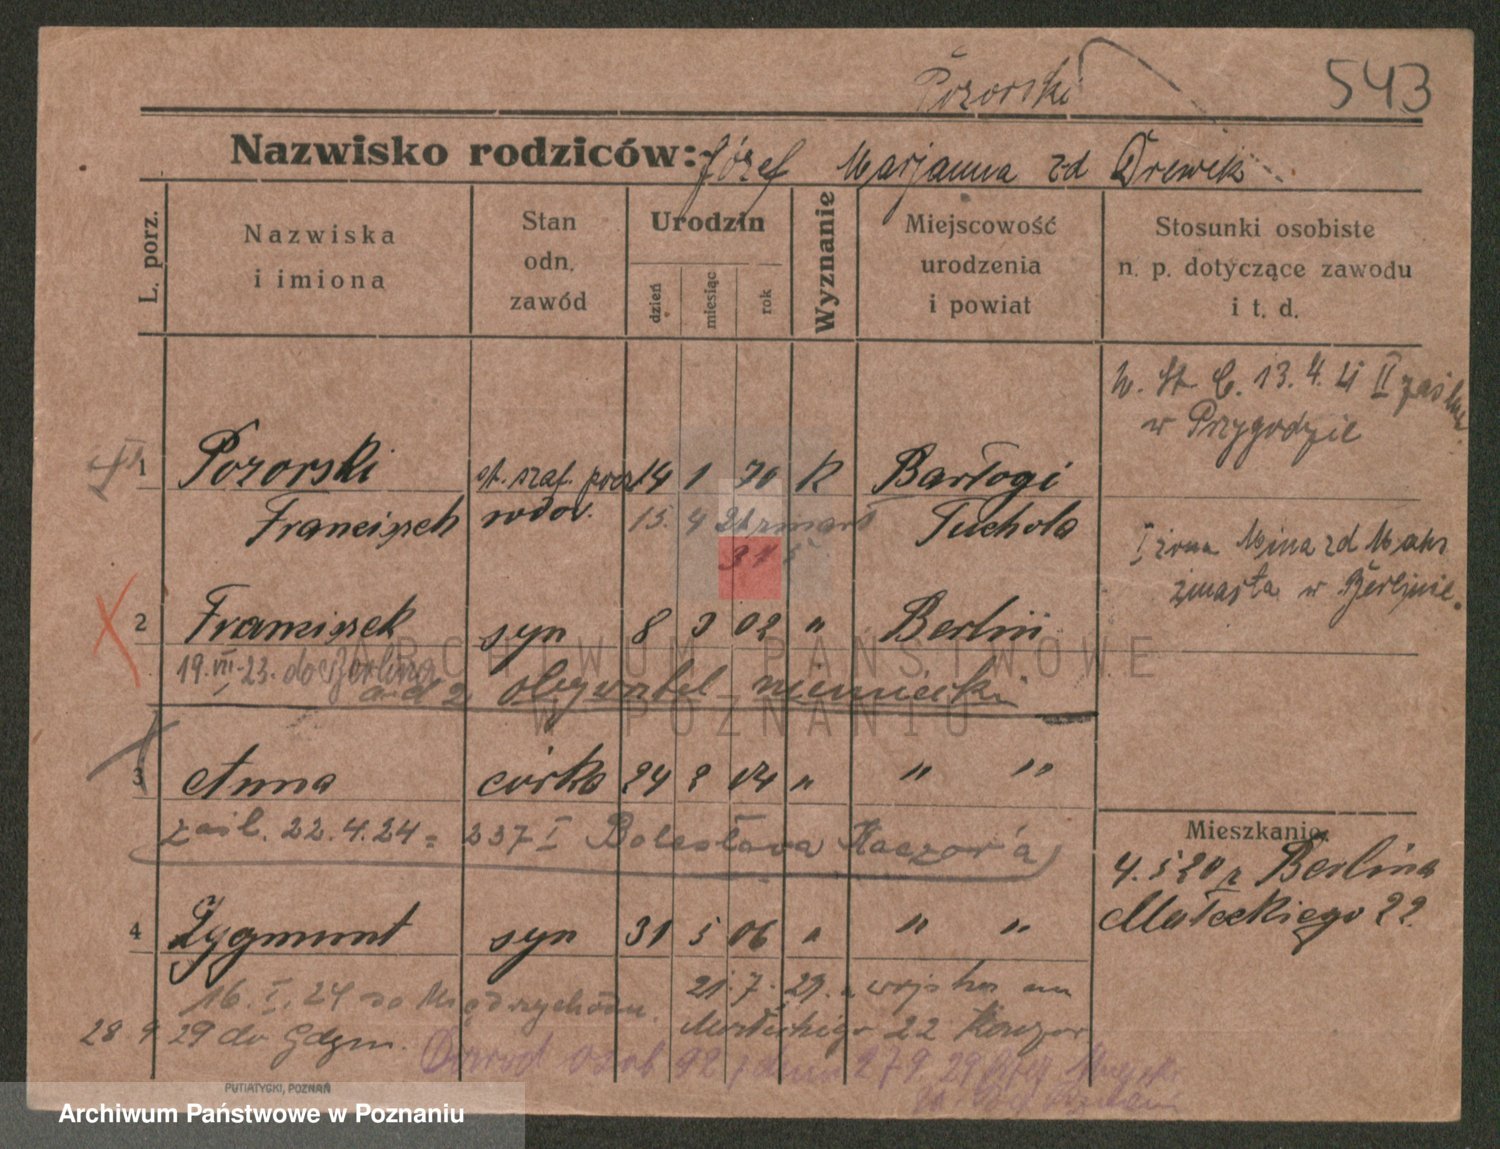 Pozorski
543
Nazwisko rodziców: Józef Marjanna zd Drewek
L. porz.
Nazwiska i imiona
Stan odn. zawód
Urodzin
dzień
miesiąc
rok
Wyznanie
Miejscowość urodzenia i powiat
Stosunki osobiste n. p. dotyczące zawodu i t. d.
13.4.
II zaślub.
w Przygodzie
1 Pozorski st. szaf. pocz 14 1 70 k Barłogi
Franciszek wdow. 15. 4 Tuchola
I żona Mina zd
zmarła w Berlinie.
2 Franciszek syn 8 3 02 " Berlin
19.VII.23. do Berlina
ad 2 obywatel niemiecki
3 Anna córka 24 2 04 " " "
zaśl. 22.4.24 = 237 I Bolesława Kaczor'a
Mieszkanie
4.5 20 z Berlina
Małeckiego 22.
4 Zygmunt syn 31 5 06 " " "
16.I.24 do Międzychodu.
21.7.29. z wojska
Małeckiego 22 Kaczor
28 9 29 do Gdyni.
Dowód osob 92 z dnia 27 9. 29
PUTIATYCKI, POZNAŃ
ARCHIWUM PAŃSTWOWE
W POZNANIU
Archiwum Państwowe w Poznaniu